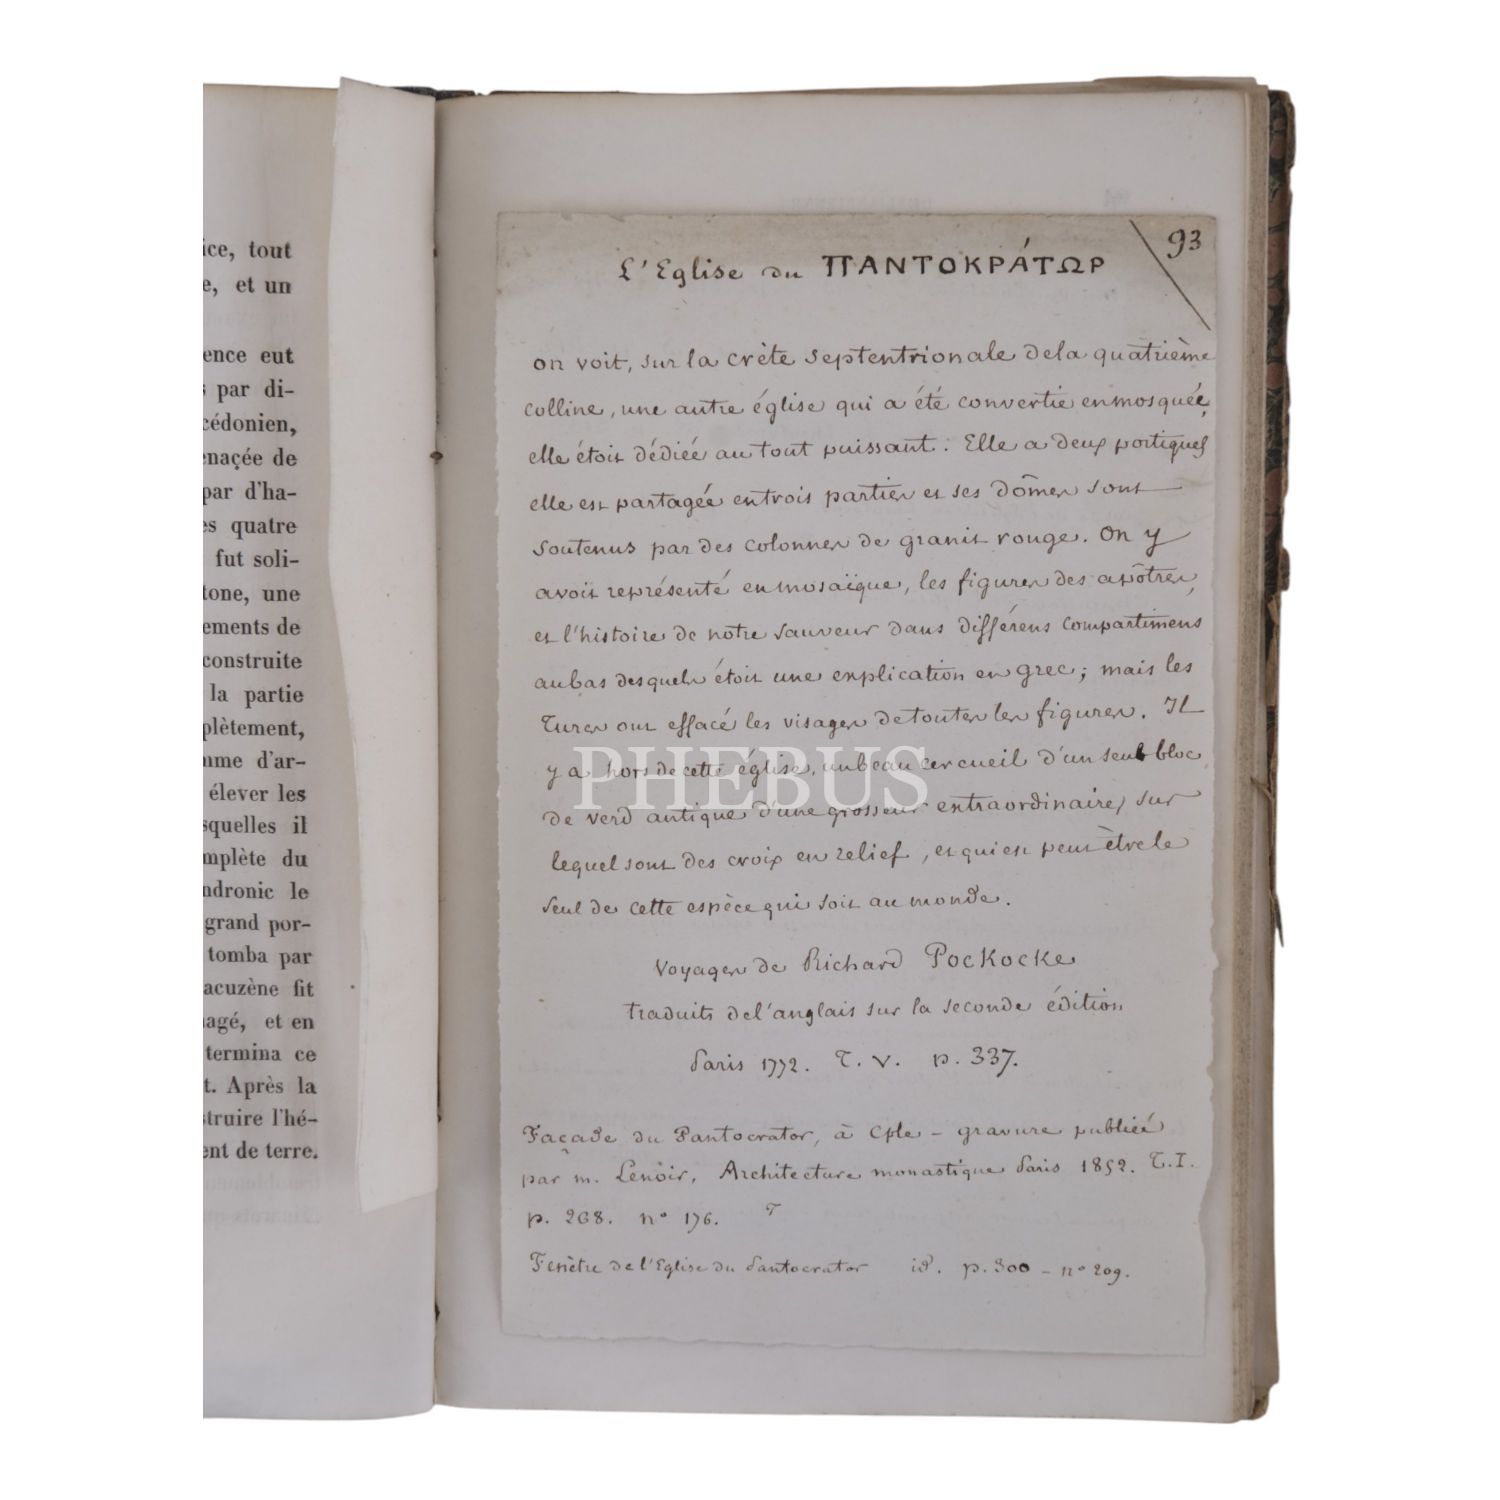 ice, tout
e, et un
ence eut
s par di-
cédonien,
enaçée de
par d'ha-
es quatre
fut soli-
tone, une
ements de
construite
la partie
plètement,
mme d'ar-
élever les
squelles il
mplète du
ndronic le
grand por-
tomba par
acuzène fit
agé, et en
termina ce
t. Après la
struire l'hé-
ent de terre.
93
L'Eglise du ΠΑΝΤΟΚΡΆΤΩΡ
on voit, sur la crète septentrionale de la quatrième
colline, une autre église qui a été convertie en mosquée,
elle étoit dédiée au tout puissant. Elle a deux portiques
elle est partagée en trois parties et ses dômes sont
soutenus par des colonnes de granit rouge. On y
avoit représenté en mosaïque, les figures des apôtres,
et l'histoire de notre sauveur dans différens compartimens
au bas desquels étoit une explication en grec; mais les
Turcs ont effacé les visages de toutes les figures. Il
y a hors de cette église, un beau cercueil d'un seul bloc
de verd antique d'une grosseur extraordinaire, sur
lequel sont des croix en relief, et qui est peut être le
seul de cette espèce qui soit au monde.
Voyages de Richard Pockocke
traduits de l'anglais sur la seconde édition
Paris 1772. T. V. p. 337.
Façade du Pantocrator, à Cple - gravure publiée
par m. Lenoir, Architecture monastique Paris 1852. T. I.
p. 268. n° 176.
Fenètre de l'Eglise du Pantocrator id. p. 300 - n° 209.
PHEBUS